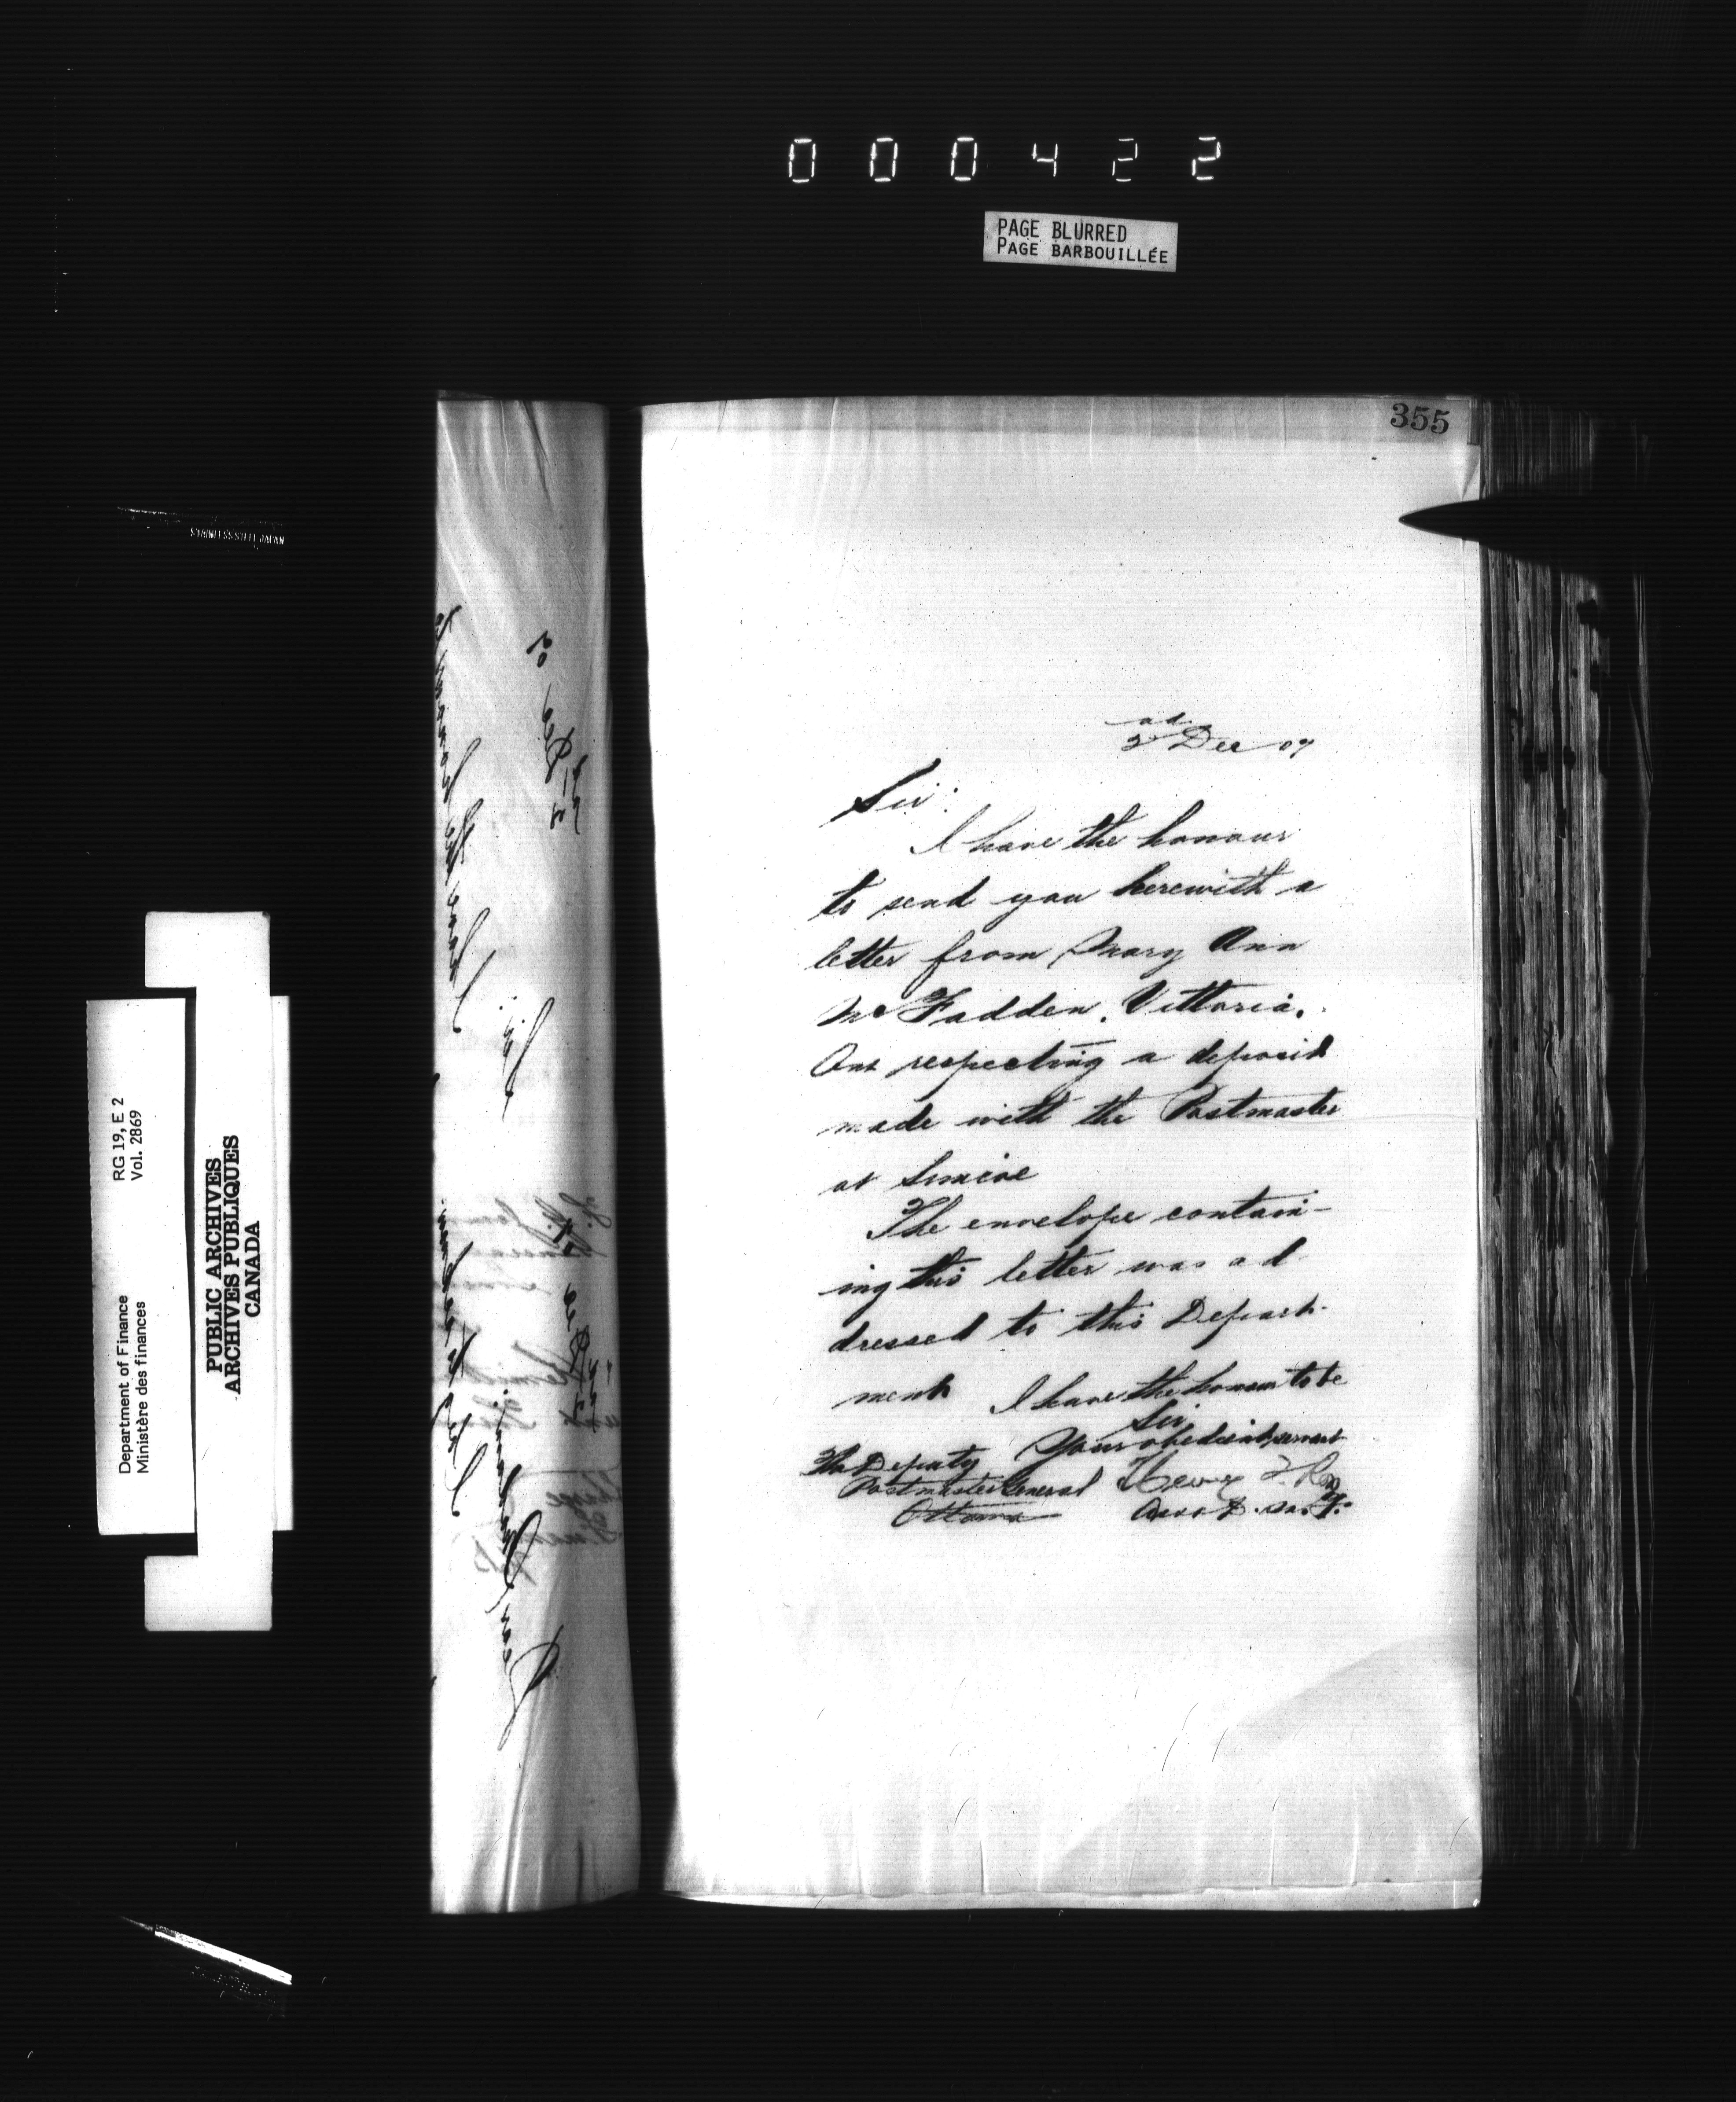 000422
PAGE BLURRED
PAGE BARBOUILLÉE
355
STAINLESS STEEL JAPAN
RG 19, E 2
Vol. 2869
Department of Finance
Ministère des finances
PUBLIC ARCHIVES
ARCHIVES PUBLIQUES
CANADA
2nd Dec 07
Sir:
I have the honour
to send you herewith a
letter from Mary Ann
McFadden, Vittoria,
Ont respecting a deposit
made with the Postmaster
at Simcoe
The envelope contain-
ing this letter was ad-
dressed to this Depart-
ment I have the honour to be
Sir
Your obedient servant
The Deputy
Postmaster General
Ottawa